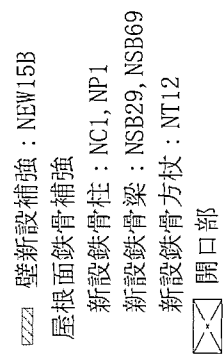 壁新設補強：NEW15B
屋根面鉄骨補強
新設鉄骨柱：NC1,NP1
新設鉄骨梁：NSB29,NSB69
新設鉄骨方杖：NT12
開口部